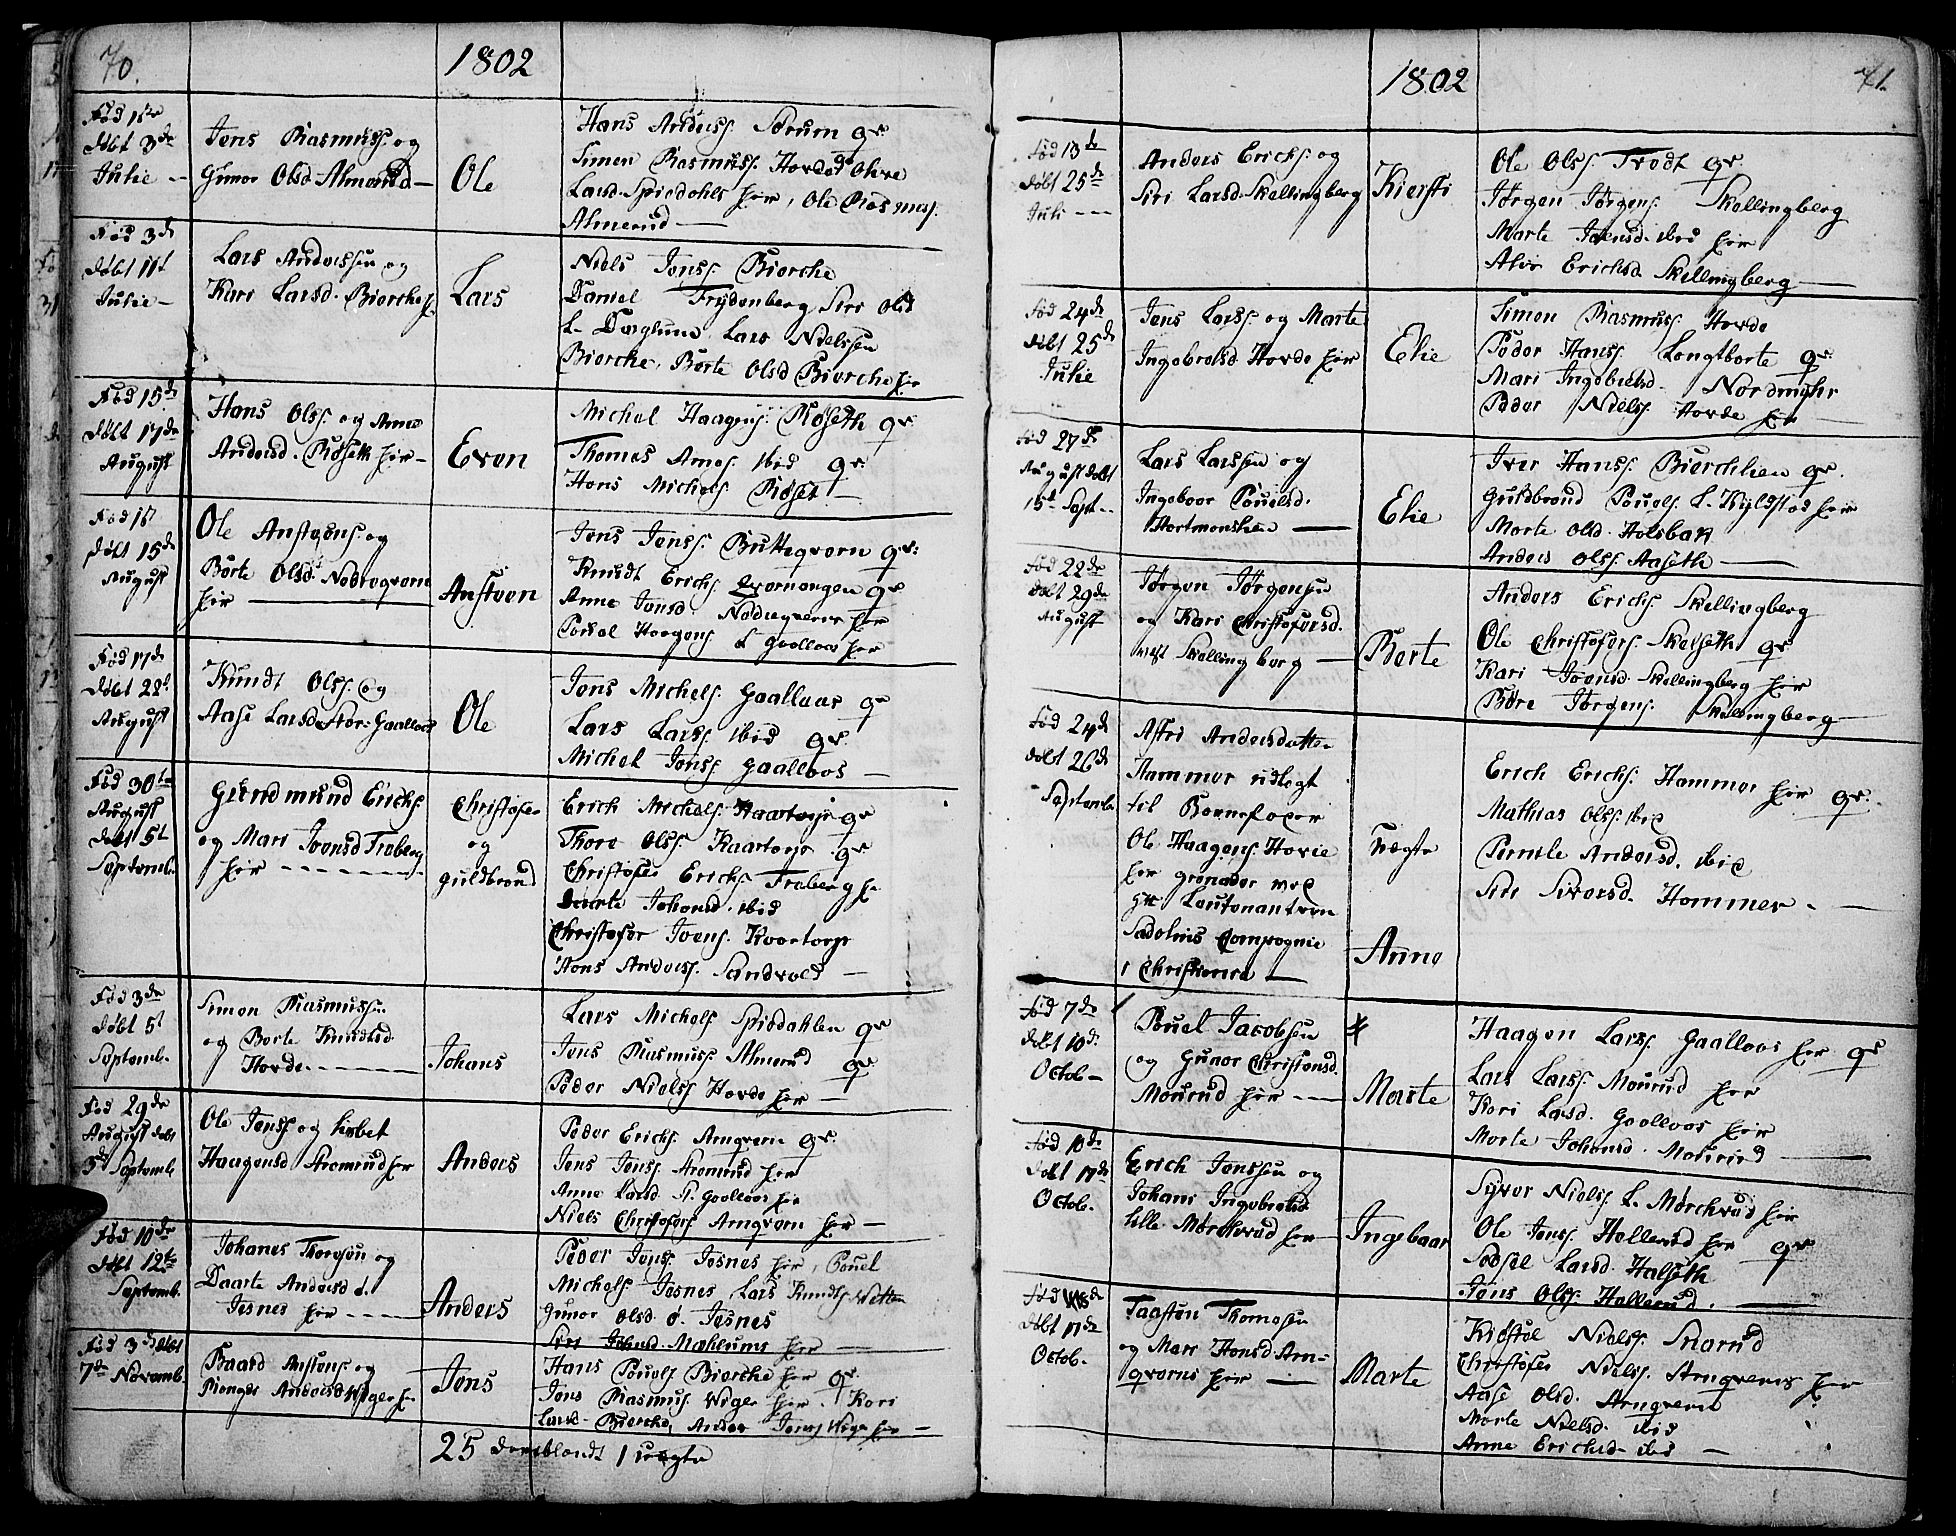 70.
1802
Fød 1ste
døbt 3de
Julie -
Jens Rasmuss. og
Gunor Olsd Almerud -
Ole
Hans Anderss. Sørum gr
Simon Rasmuss. Hovde
Larsd. Spiedahls her, Ole Rasmuss.
Almerud -
Fød 3de
døbt 11te
Julie -
Lars Anderssen og
Kari Larsd. Biercke h.
Lars
Niels Jenss. Biercke
Daniel Frydenberg Siri Olsd
L. Lars Nielssen
Biercke, Børte Olsd Biercke her
Fød 15de
døbt 17de
August
Hans Olss. og Anne
Andersd. Røseth her -
Even
Michel Haagens. Røseth gr
Thomas Arnes. ibid gr
Hans Michels. Røset -
Fød 15
døbt 15de
August
Ole Anstens. og
Børte Olsd. Nedregvern
her -
Ansteen
Jens Jenss. Buttegvorn gr:
Knudt Erichs. Gvernengen gr
Anne Jensd Nedregvern her
Povel Haagens L Gaallaas her
Fød 17de
døbt 22de
August
Knudt Olss. og
Aase Larsd Stor-Gaallaas
Ole
Jens Michels. Gaallaas gr
Lars Larss. ibid gr.
Michel Jenss. Gaallaas -
Fød 30te
August
døbt 5t
Septemb.
Gundmund Erichs
og Mari Joensd Froberg
her -
Christofer
og
Guldbrand
Erich Michels. Kaartorp gr
Thore Olss. Kaartorp gr
Christofer Erichs. Froberg h.
Johansd. ibid
Christofer Joens. Kaartorp
Hans Anderss. Sandvold -
Fød 3de
døbt 5t
Septemb.
Simon Rasmussen
og Berte Knudsd.
Hovde. -
Johans
Lars Michels Spiedahlen gr
Jens Rasmuss. Almerud gr
Peder Nielss Hovde her -
Fød 29de
August døbt
5t Septemb.
Ole Jenss og Lisbet
Haagensd Aremrud her
Anders
Peder Erichs. Arnqvern gr.
Jens Jenss. Aremrud her
Anne Larsd. St. Gaallaas her
Niels Christofers Arnqvern her -
Fød 10de
døbt 12te
Septemb.
Johanes Thorsen og
Daarte Andersd.
Jesnes her -
Anders
Peder Jenss. Jesnes her, Povel
Michels. Jesnes, Lars Knuds Wetten
Gunor Olsd. ø. Jesnes
Siri Mæhlums her -
Fød 3de døbt
7de Novemb.
Baard Anstens og
Andersd Wiger h.
Jens
Hans Povels Biercke her gr
Jens Rasmuss. Wiger her. Kari
Larsd. Biercke, Anders Jenss Wiger her -
25 deriblandt 1 uægte
71.
1802
Fød 13de
døbt 25de
Juli -
Anders Erichs. og
Siri Larsd. Skellingberg
Kiersti
Ole Olss. Trodt gr
Jørgen Jørgens. Skellingberg
Marte Joensd. ibid her
Erichsd. Skellingberg -
Fød 24de
døbt 25de
Julie
Jens Larss. og Marte
Ingebretsd Hovde her
Elie
Simon Rasmuss Hovde
Peder Hanss. Longtborte gr.
Mari Ingebretsd. Nordmyhr
Peder Nielss. Hovde her -
Fød 27de
August døbt
15de Sept -
Lars Larssen og
Ingeboer Povelsd.
Hortmanslien -
Elie
Iver Hanss. Bierchlien gr.
Guldbrand Povels. L. Kyldstad her
Morte Olsd. Holsbak
Anders Olss. Aaseth -
Fød 22de
døbt 29de
August
Jørgen Jørgensen
og Kari Christofersd.
Skellingberg -
Berte
Anders Erichs. Skellingberg
Ole Christofers. Skelseth gr
Kari Joensd. Skellingberg her
Børe Jørgens. Skellingberg -
Fød 24de
døbt 26de
Septemb.
Astri Andersdatter
Hammer udlegt
til Barnefader
Ole Haagens. Hovie
her grenader ved
Hr. Leutenantvon
Sadolins Compagnie
i Christiania -
Uægte
Anne
Erich Erichs. Hammer her gr.
Mathias Olss. ibid
Pernele Andersd. ibid
Siri Siversd. Hammer. -
Fød 7de
døbt 10de
Octob -
Povel Jacobsen
og Gunor Christensd.
Mourud her -
Marte
Haagen Larss. Gaallaas her gr
Lars Larss. Mourud her
Kari Larsd. Gaallaas her
Morte Johansd. Mourud -
Fød 10de
døbt 17de
Octob.
Erich Jenssen og
Johane Ingebretsd
Lille Mørchvud her
Ingebaar
Syver Nielss L. Mørchvud her
Ole Jenss Hallerud her gr
Sidsel Larsd. Halseth
Jens Olss. Hallerud. -
Fød
døbt 17de
Octob.
Taasten Thomesen
og Mari Hansd Arn-
qverns her -
Marte
Kiøstel Nielss. Snarud
Christofer Nielss. Arnqvern her
Aase Olsd. Arnqvern
Morte Nielsd. ibid
Anne Erichsd. ibid -